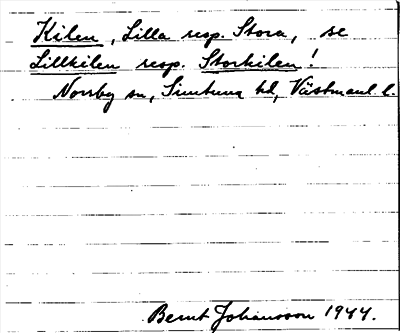 Kilen, Lilla resp. Stora, se
Lillkilen resp. Storkilen!
Norrby sn, Simtuna hd, Västmanl. l.
Bernt Johansson 1944.